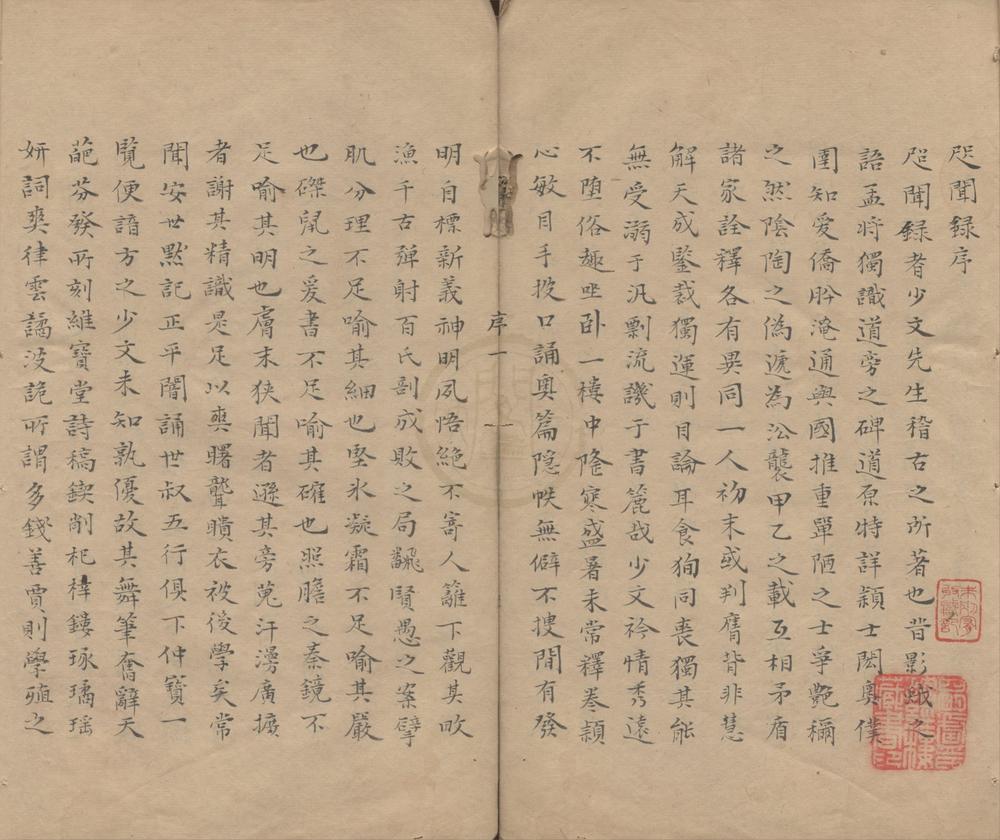 咫聞録序
咫聞録者少文先生稽古之所著也昔影蛾之
語孟將獨識道旁之碑道原特詳頴士閎奧僕
圍知愛僑肸淹通與國推重單陋之士爭艶稱
之然陰陶之偽遞為沿襲甲乙之載互相矛盾
諸家詮釋各有異同一人初末或判膺背非慧
解天成鑒裁獨運則目論耳食狥同喪獨其能
無受溺于汎剽流譏于書簏哉少文衿情秀遠
不堕俗趣坐卧一樓中隆寒盛暑未常釋卷頴
心敏目手披口誦奧篇隠帙無僻不搜間有發
序 一
明自標新義神明夙悟絶不寄人籬下觀其畋
漁千古殫射百氏剖成敗之局翻賢愚之案擘
肌分理不足喻其細也堅氷凝霜不足喻其嚴
也磔䑕之爰書不足喻其確也照膽之秦鏡不
足喻其明也膚末狹聞者遜其旁蒐汗漫廣擴
者謝其精識是足以爽曙聾聵衣被後學矣常
聞安世黙記正平闇誦世叔五行俱下仲寶一
覧便諳方之少文未知孰優故其舞筆奮辭天
葩芬發所刻維寶堂詩稿鍥削杞梓鏤琢璚瑶
妍詞奕律雲譎波詭所謂多錢善賈則學殖之